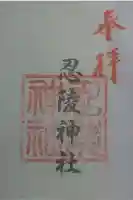 奉拝
忍陵神社